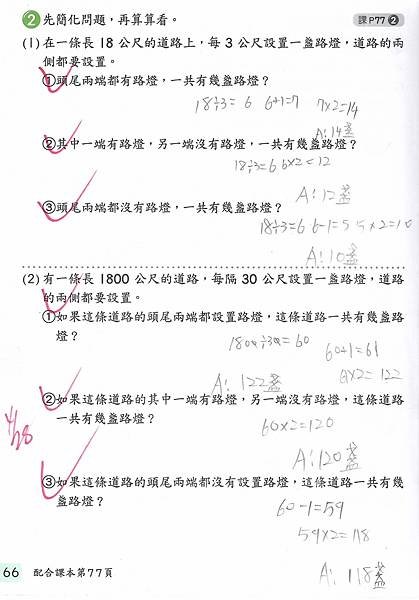 ❷ 先簡化問題，再算算看。 課P77❷
(1) 在一條長 18 公尺的道路上，每 3 公尺設置一盞路燈，道路的兩
側都要設置。
①頭尾兩端都有路燈，一共有幾盞路燈？
18÷3=6 6+1=7 7×2=14
A:14盞
②其中一端有路燈，另一端沒有路燈，一共有幾盞路燈？
18÷3=6 6×2=12
A:12盞
③頭尾兩端都沒有路燈，一共有幾盞路燈？
18÷3=6 6-1=5 5×2=10
A:10盞
(2) 有一條長 1800 公尺的道路，每隔 30 公尺設置一盞路燈，道路
的兩側都要設置。
①如果這條道路的頭尾兩端都設置路燈，這條道路一共有幾盞路
燈？
1800÷30=60
60+1=61
61×2=122
A:122盞
②如果這條道路的其中一端有路燈，另一端沒有路燈，這條道路
一共有幾盞路燈？
4/28
60×2=120
A:120盞
③如果這條道路的頭尾兩端都沒有設置路燈，這條道路一共有幾
盞路燈？
60-1=59
59×2=118
A:118盞
66 配合課本第77頁